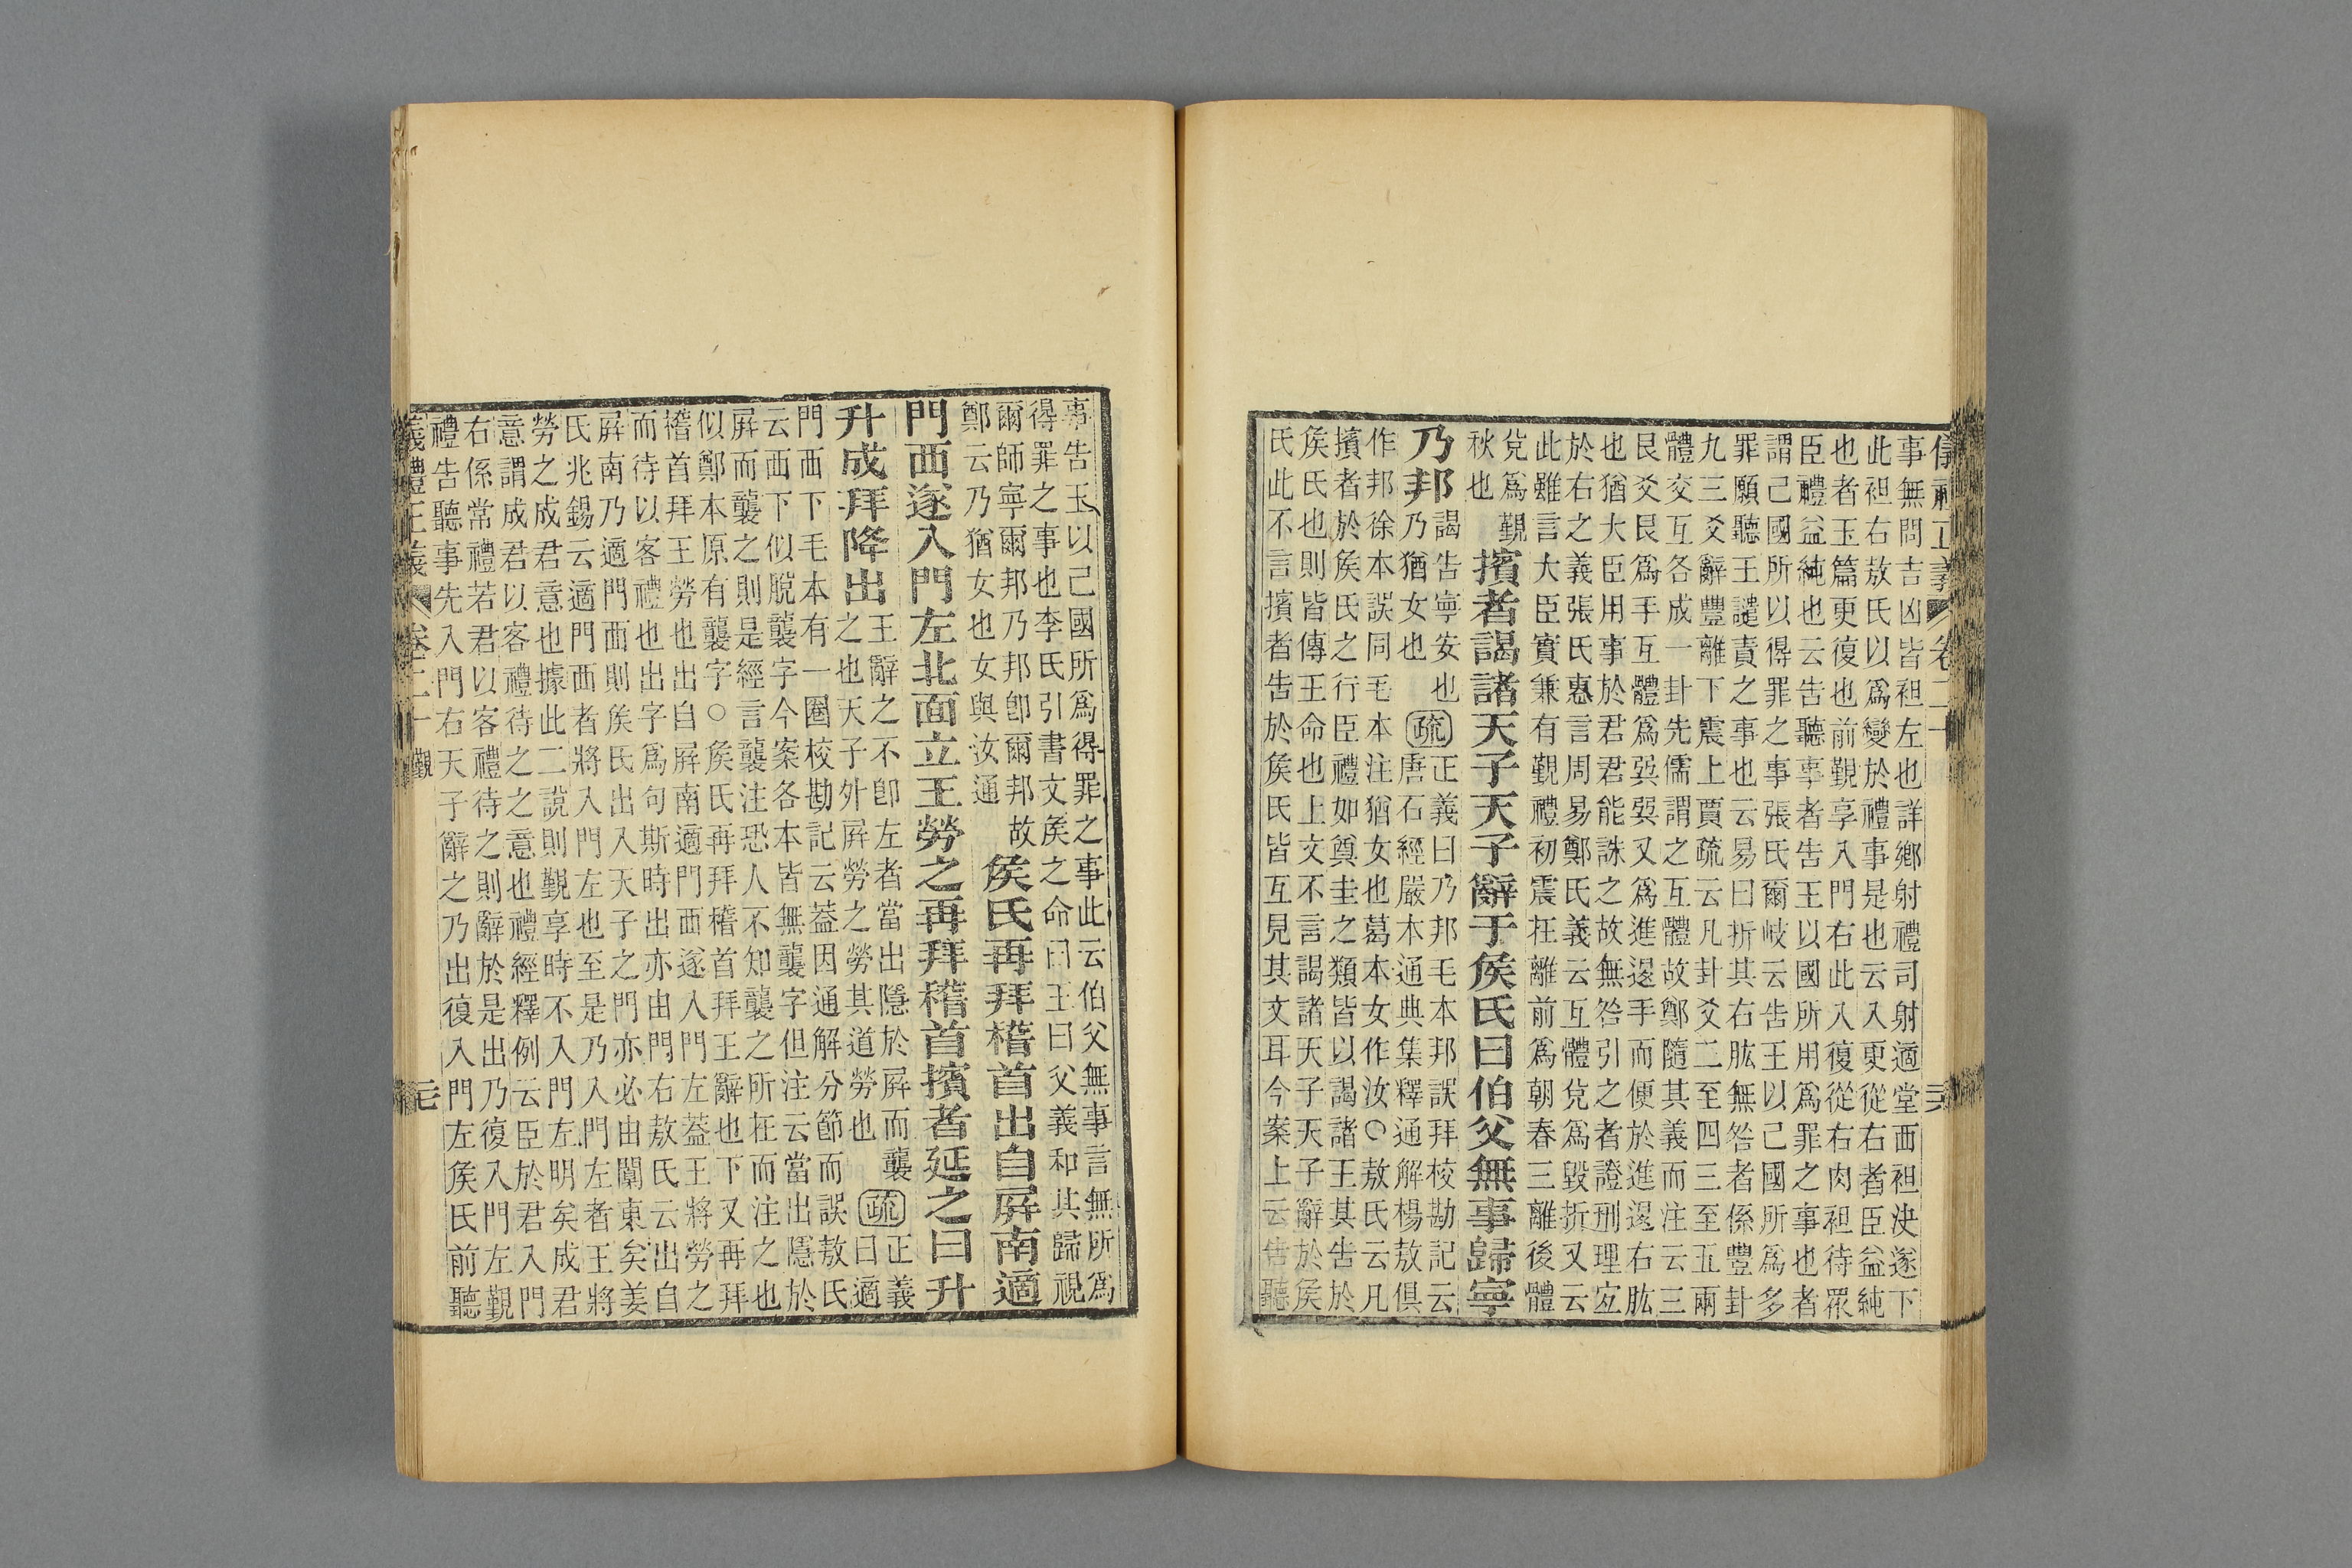 儀禮正義 卷二十
事無問吉凶皆袒左也詳鄉射禮司射適堂西袒決遂下
此袒右敖氏以爲變於禮事是也云入更從右者臣益純
也者玉篇更復也前覲享入門右此入復從右肉袒待罪
臣禮益純也云告聽事者告王以國所用爲罪之事也者
謂己國所以得罪之事張氏爾岐云告王以己國所爲多
罪願聽王譴責之事也云易曰折其右肱無咎者係豐卦
九三爻辭豐離下震上賈疏云凡卦爻二至四三至五兩
體交互各成一卦先儒謂之互體故鄭隨其義而注云三
艮爻艮爲手互體爲巽巽又爲進退手而便於進退右肱
也猶大臣用事於君君能誅之故無咎引之者證刑理宜
於右之義張氏惠言周易鄭氏義云互體兌爲毀折又云
此雖言大臣實兼有覲禮初震在離前爲朝春三離後體
兌爲覲
秋也
擯者謁諸天子天子辭于侯氏曰伯父無事歸寧
乃邦
謁告寧安也
乃猶女也
疏
正義曰乃邦毛本邦誤拜校勘記云
唐石經嚴本通典集釋通解楊敖俱
作邦徐本誤同毛本注猶女也葛本女作汝○敖氏云凡
擯者於侯氏之行臣禮如奠圭之類皆以謁諸王其告於
侯氏也則皆傳王命也上文不言謁諸天子天子辭於侯
氏此不言擯者告於侯氏皆互見其文耳今案上云告聽
事告王以己國所爲得罪之事此云伯父無事言無所爲
得罪之事也李氏引書文侯之命曰王曰父義和其歸視
爾師寧爾邦乃邦卽爾邦故
鄭云乃猶女也女與汝通
侯氏再拜稽首出自屏南適
門西遂入門左北面立王勞之再拜稽首擯者延之曰升
升成拜降出
王辭之不卽左者當出隱於屏而襲
之也天子外屏勞之勞其道勞也
疏
正義
曰適
門西下毛本有一圈校勘記云葢因通解分節而誤敖氏
云西下似脫襲字今案各本皆無襲字但注云當出隱於
屏而襲之則是經言襲注恐人不知襲之所在而注之也
似鄭本原有襲字○侯氏再拜稽首拜王辭也下又再拜
稽首拜王勞也出自屏南適門西遂入門左葢王將勞之
而待以客禮也出字爲句斯時出亦由門右敖氏云出自
屏南乃適門西則侯氏出入天子之門亦必由闑東矣姜
氏兆錫云適門西者將入門左也至是乃入門左者王將
勞之成君意也據此二說則覲享時不入門左明矣成君
意謂成君以客禮待之之意也禮經釋例云臣於君入門
右係常禮若君以客禮待之則辭於是出乃復入門左覲
禮告聽事先入門右天子辭之乃出復入門左侯氏前聽
義禮正義 卷二十 覲